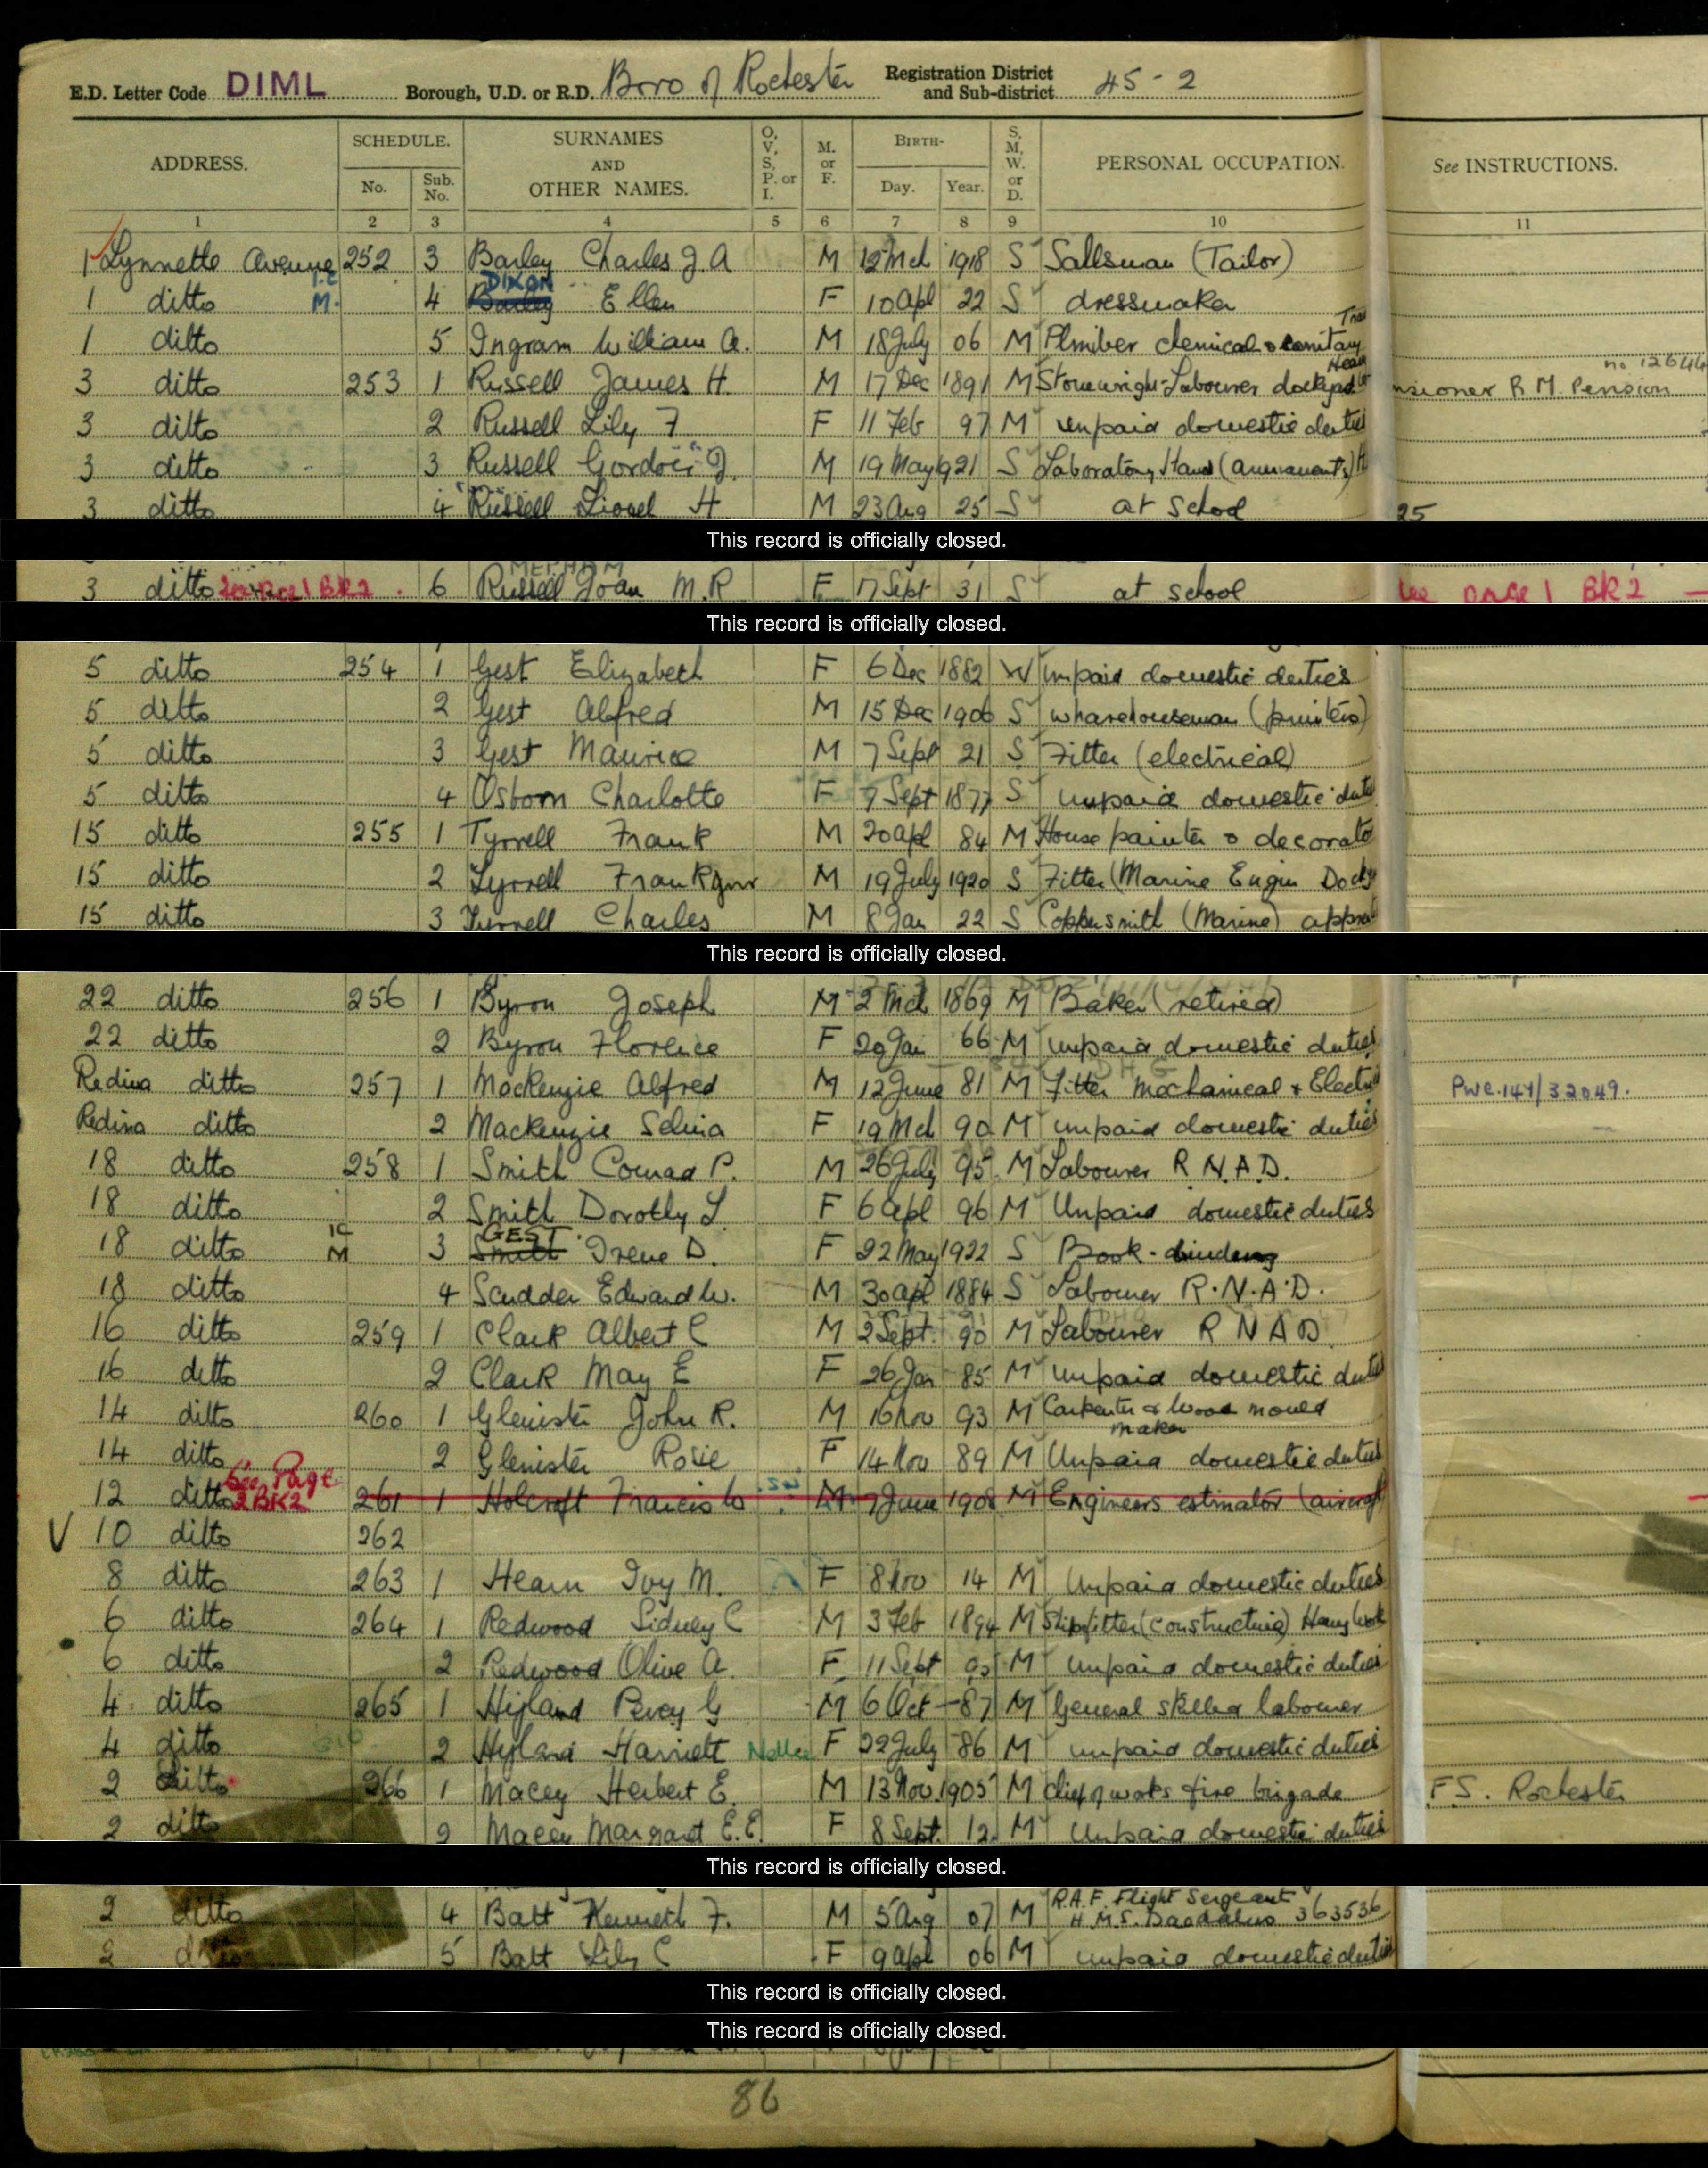 E.D. Letter Code DIML Borough, U.D. or R.D. Boro of Rochester Registration District and Sub-district 45-2
ADDRESS. SCHEDULE. No. Sub. No. SURNAMES AND OTHER NAMES. O, V, S, P. or I. M. or F. BIRTH- Day. Year. S, M, W, or D. PERSONAL OCCUPATION. See INSTRUCTIONS.
1 2 3 4 5 6 7 8 9 10 11
1 Lynnette Avenue 252 3 Barley Charles J A M 12 Mch 1918 S Sallsman (Tailor)
1 ditto M. 4 Barley DIXON Ellen F 10 Apl 22 S dressmaker
1 ditto 5 Ingram William A. M 18 July 06 M Plmiber chemical & sanitary
3 ditto 253 1 Russell James H. M 17 Dec 1891 M Stonewright Labourer dockyard Pension
3 ditto 2 Russell Lily F F 11 Feb 97 M unpaid domestic duties
3 ditto 3 Russell Gordon J. M 19 May 1921 S Laboratory Hand (armaments)
3 ditto 4 Russell Lionel H M 23 Aug 25 S at School 25
This record is officially closed.
3 ditto See Page 1 BK2. 6 Russell MEPHAM Joan M.R F 17 Sept 31 S at school see page 1 BK2
This record is officially closed.
5 ditto 254 1 Gest Elizabeth F 6 Dec 1882 W unpaid domestic duties
5 ditto 2 Gest Alfred M 15 Dec 1906 S wharehouseman (printers)
5 ditto 3 Gest Maurice M 7 Sept 21 S Fitter (electrical)
5 ditto 4 Osborn Charlotte F 7 Sept 1877 S unpaid domestic dut
15 ditto 255 1 Tyrrell Frank M 20 Apl 84 M House painter & decorato
15 ditto 2 Tyrrell Frank Jnr M 19 July 1920 S Fitter (Marine Engin Docky
15 ditto 3 Tyrrell Charles M 8 Jan 22 S Coppersmith (Marine) appren
This record is officially closed.
22 ditto 256 1 Byron Joseph M 2 Mch 1869 M Baker (retired)
22 ditto 2 Byron Florence F 29 Jan 66 M unpaid domestic duties
Redina ditto 257 1 MacKenzie Alfred M 12 June 81 M Fitter Mechanical & Elect
Redina ditto 2 MacKenzie Selina F 19 Mch 90 M unpaid domestic duties
18 ditto 258 1 Smith Conrad P. M 26 July 95 M Labourer R.N.A.D.
18 ditto 2 Smith Dorothy L. F 6 Apl 96 M Unpaid domestic duties
18 ditto M 3 Smith GEST Irene D. F 22 May 1922 S Book-binding
18 ditto 4 Scudder Edward W. M 30 Apl 1884 S Labourer R.N.A.D.
16 ditto 259 1 Clark Albert C M 2 Sept. 90 M Labourer R N A D
16 ditto 2 Clark May E F 26 Jan 85 M unpaid domestic dut
14 ditto 260 1 Glenister John R. M 16 Nov 93 M Carpenter & Wood mould maker
14 ditto 2 Glenister Rosie F 14 Nov 89 M Unpaid domestic duties
12 ditto See Page 2 BK2 261 1 Holcroft Francis W M 7 June 1908 M Engineers estimator (aircraft
V 10 ditto 262
8 ditto 263 1 Hearn Ivy M. F 8 Nov 14 M Unpaid domestic duties
6 ditto 264 1 Redwood Sidney C M 3 Feb 1894 M Shipfitter (constructing) Heavy Work
6 ditto 2 Redwood Olive A. F 11 Sept M unpaid domestic duties
4 ditto 265 1 Hyland Percy G M 6 Oct 87 M General skilled labourer
4 ditto 2 Hyland Harriett Nellie F 22 July 86 M unpaid domestic duties
2 ditto 266 1 Macey Herbert E. M 13 Nov 1905 M Chief of works fire brigade F.S. Rochester
2 ditto 2 Macey Margaret E.E F 8 Sept. 12 M Unpaid domestic duties
This record is officially closed.
2 ditto 4 Batt Kenneth F. M 5 Aug 07 M R.A.F. Flight Sergeant H.M.S. Daedalus 363536
2 ditto 5 Batt Lily C F 9 Apl 06 M unpaid domestic duties
This record is officially closed.
This record is officially closed.
86